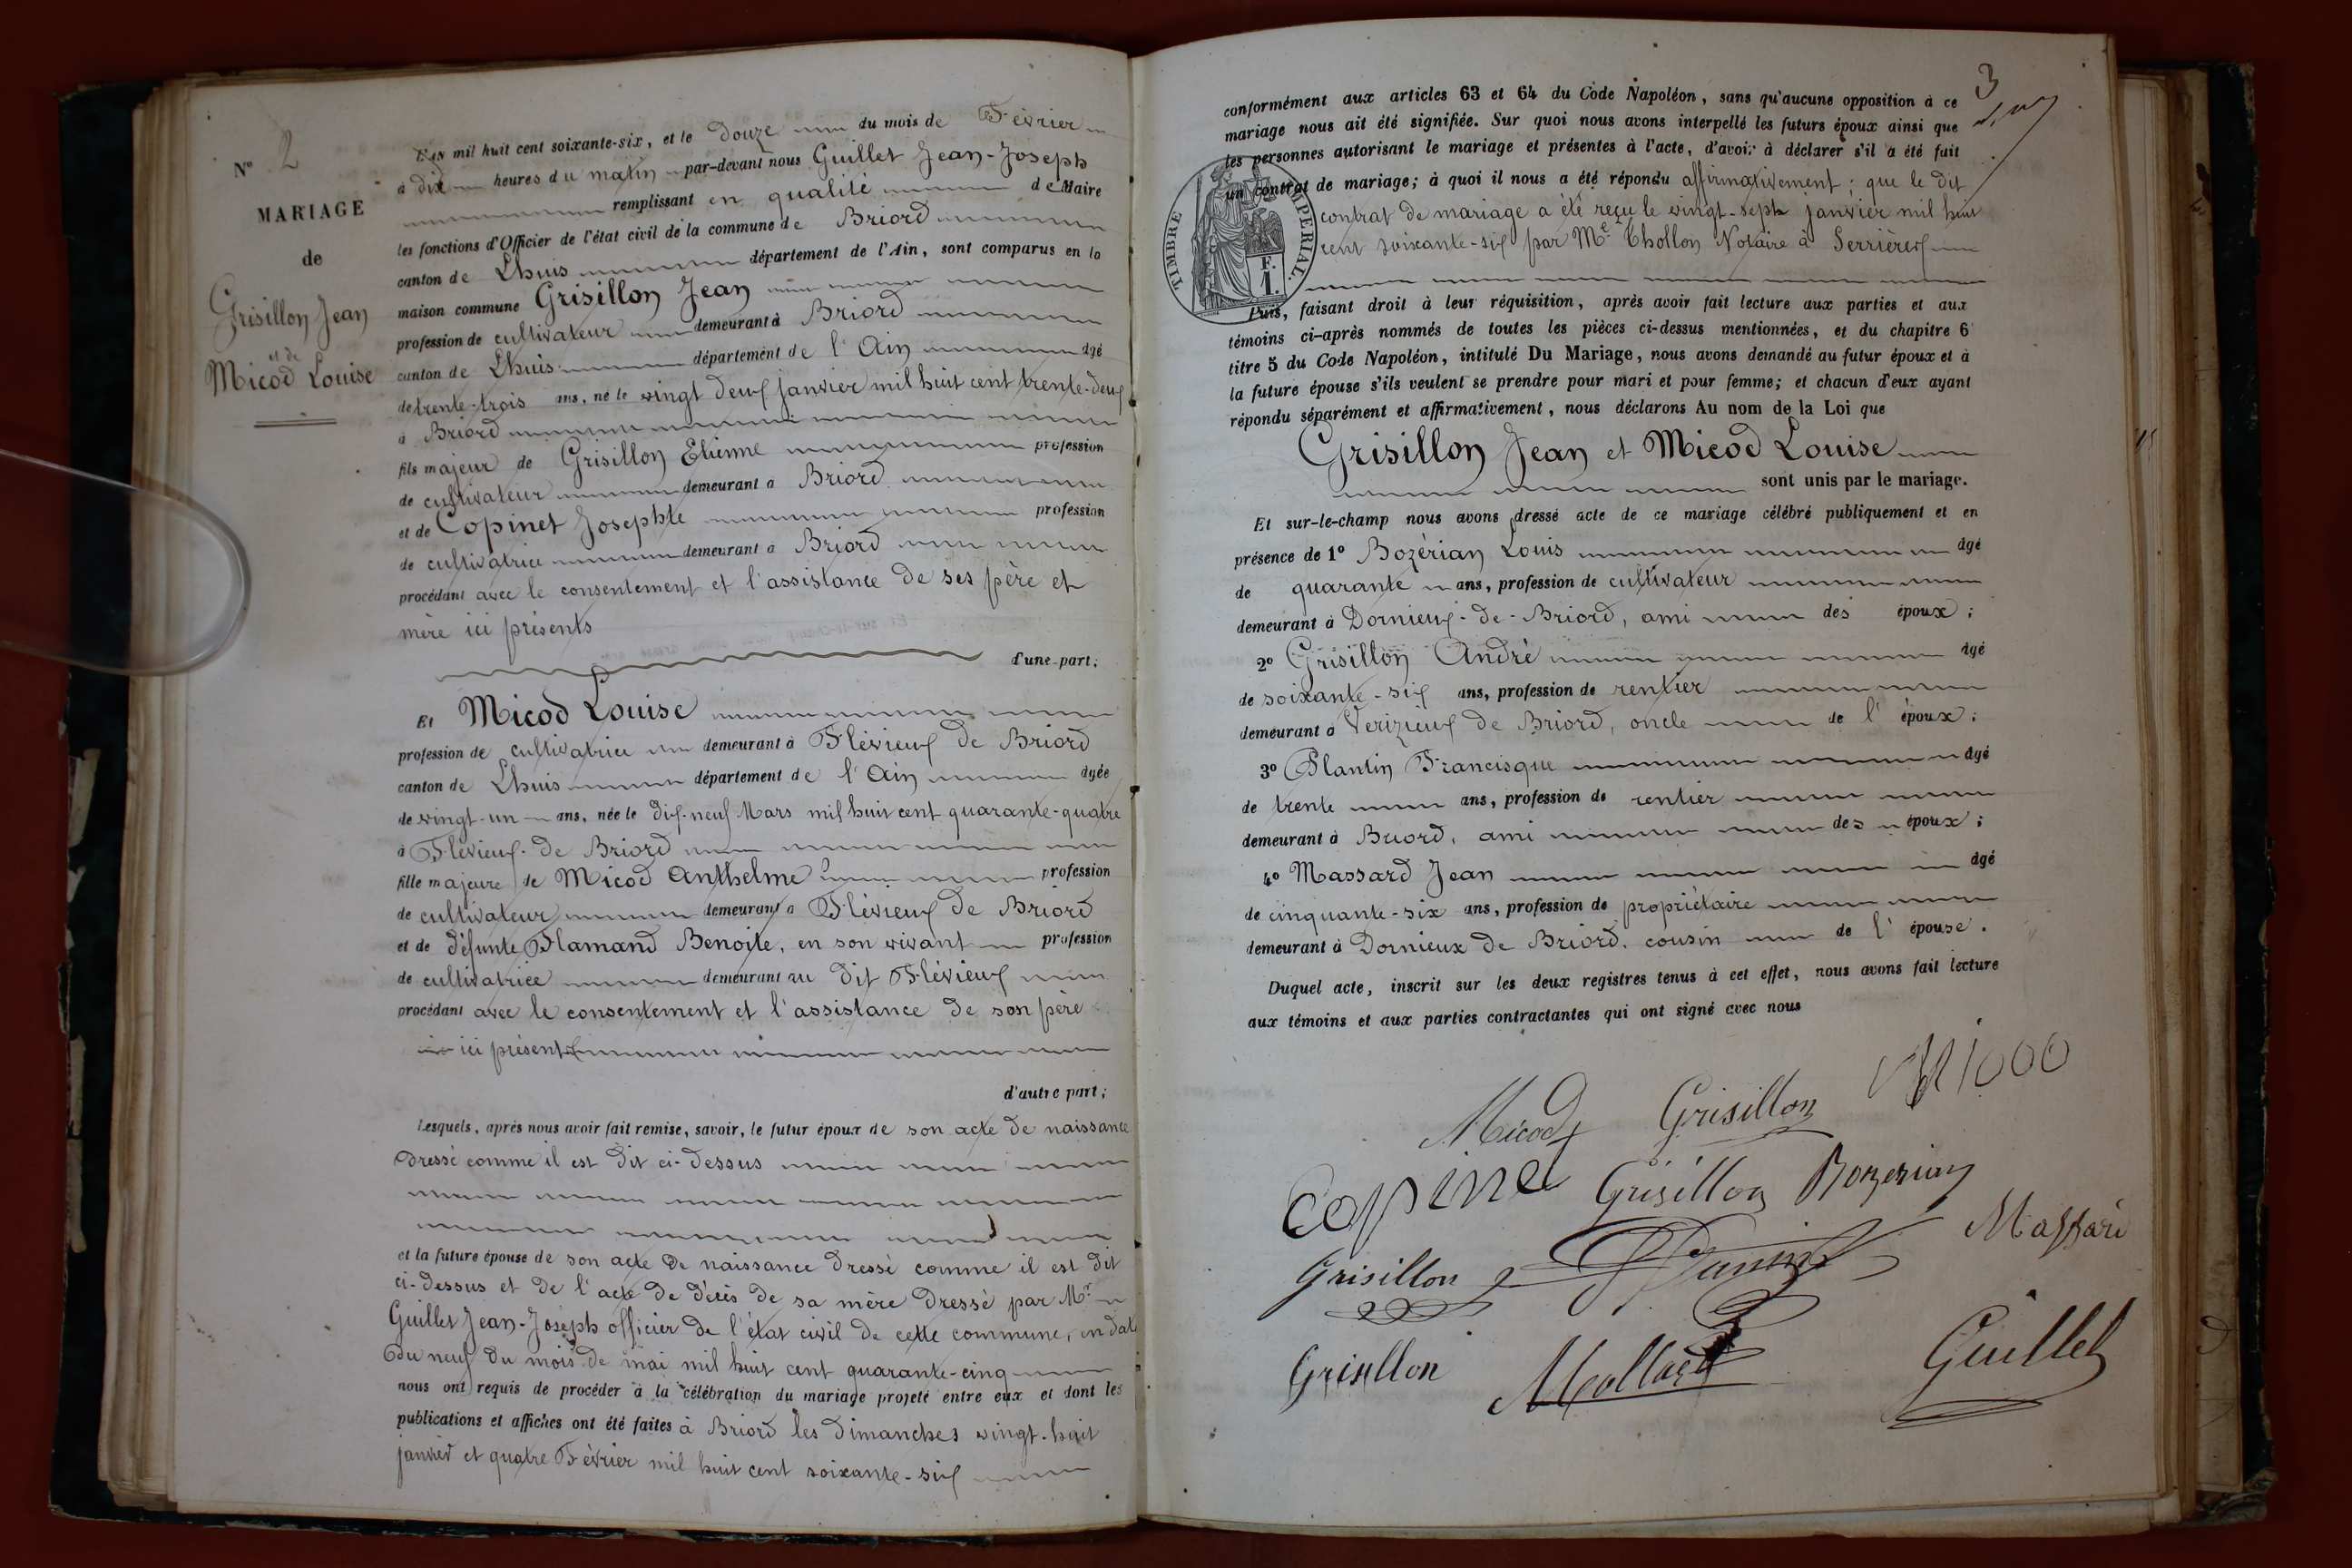 N° 2
MARIAGE
de
Grisillon Jean
et de
Micod Louise
L'AN mil huit cent soixante-six, et le Douze du mois de Février
à dix heures du matin par-devant nous Guillet Jean-Joseph
remplissant en qualité de Maire
les fonctions d'Officier de l'état civil de la commune de Briord
canton de Lhuis département de l'Ain, sont comparus en la
maison commune Grisillon Jean
profession de cultivateur demeurant à Briord
canton de Lhuis département de l'Ain âgé
de trente-trois ans, né le vingt deux janvier mil huit cent trente-deux
à Briord
fils majeur de Grisillon Etienne profession
de cultivateur demeurant à Briord
et de Copinet Josephte profession
de cultivatrice demeurant à Briord
procédant avec le consentement et l'assistance de ses père et
mère ici présents
d'une part;
Et Micod Louise
profession de cultivatrice demeurant à Flévieux de Briord
canton de Lhuis département de l'Ain âgée
de vingt-un ans, née le dix-neuf Mars mil huit cent quarante-quatre
à Flévieux de Briord
fille majeure de Micod Anthelme profession
de cultivateur demeurant à Flévieux de Briord
et de défunte Flamand Benoite, en son vivant profession
de cultivatrice demeurant au dit Flévieux
procédant avec le consentement et l'assistance de son père
ici présent
d'autre part;
Lesquels, après nous avoir fait remise, savoir, le futur époux de son acte de naissance
dressé comme il est dit ci-dessus
et la future épouse de son acte de naissance dressé comme il est dit
ci-dessus et de l'acte de décès de sa mère dressé par Mr
Guillet Jean-Joseph officier de l'état civil de cette commune, en date
du neuf du mois de mai mil huit cent quarante-cinq
nous ont requis de procéder à la célébration du mariage projeté entre eux et dont les
publications et affiches ont été faites à Briord les dimanches vingt-huit
janvier et quatre Février mil huit cent soixante-six
3
conformément aux articles 63 et 64 du Code Napoléon, sans qu'aucune opposition à ce
mariage nous ait été signifiée. Sur quoi nous avons interpellé les futurs époux ainsi que
les personnes autorisant le mariage et présentes à l'acte, d'avoir à déclarer s'il a été fait
un contrat de mariage; à quoi il nous a été répondu affirmativement; que le dit
contrat de mariage a été reçu le vingt-sept janvier mil huit
cent soixante-six par Me Thollon Notaire à Serrières
TIMBRE IMPERIAL
1 F.
Puis, faisant droit à leur réquisition, après avoir fait lecture aux parties et aux
témoins ci-après nommés de toutes les pièces ci-dessus mentionnées, et du chapitre 6
titre 5 du Code Napoléon, intitulé Du Mariage, nous avons demandé au futur époux et à
la future épouse s'ils veulent se prendre pour mari et pour femme; et chacun d'eux ayant
répondu séparément et affirmativement, nous déclarons Au nom de la Loi que
Grisillon Jean et Micod Louise
sont unis par le mariage.
Et sur-le-champ nous avons dressé acte de ce mariage célébré publiquement et en
présence de 1° Bozérian Louis âgé
de quarante ans, profession de cultivateur
demeurant à Dornieux-de-Briord, ami des époux;
2° Grisillon André âgé
de soixante-six ans, profession de rentier
demeurant à Verizieux de Briord, oncle de l'époux;
3° Plantin Francisque âgé
de trente ans, profession de rentier
demeurant à Briord, ami des époux;
4° Massard Jean âgé
de cinquante-six ans, profession de propriétaire
demeurant à Dornieux de Briord, cousin de l'épouse.
Duquel acte, inscrit sur les deux registres tenus à cet effet, nous avons fait lecture
aux témoins et aux parties contractantes qui ont signé avec nous
Micod Grisillon
Copinet Grisillon Bozerian
Grisillon Massard
Grisillon Mollard Guillet